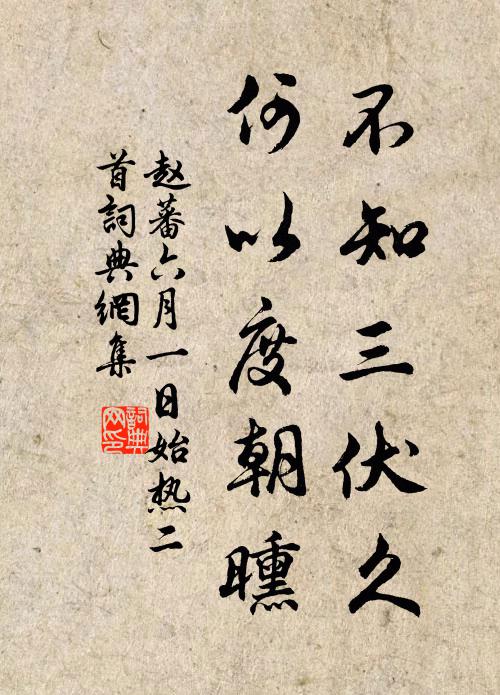 不知三伏久
何以度朝曛
赵蕃六月一日始热二
首詞典網集
詞典网印